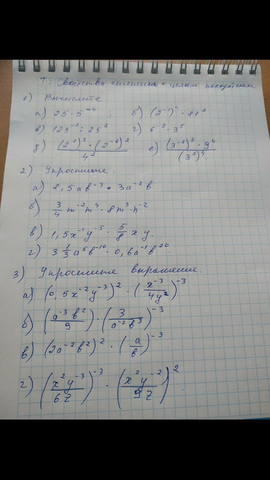 Т: Свойства степени с целым показателем
1) Вычислите
а) 25 · 5⁻⁴ б)
в) 125⁻² : 25² г) 6⁻³ · 3³
д) е)
2) Упростите
а) 2,5ab⁻³ · 3a⁻²b
б) 3/4 m⁻²n⁴ · 8m³n⁻²
в) 1,5x⁻¹y⁻⁵ · 5/8 xy
г) 3 1/3 a⁵b⁻¹⁰ · 0,6a⁻¹b²⁰
3) Упростите выражение.
а) (0,5x⁻²y⁻³)² · (x⁻³/4y²)⁻³
б) (a⁻³b²/9) · (3/a⁻²b³)⁻³
в) (2a⁻²b²)² · (a/b)⁻³
г) (x²y⁻³/6z)⁻³ · (x²y⁻²/9z)²